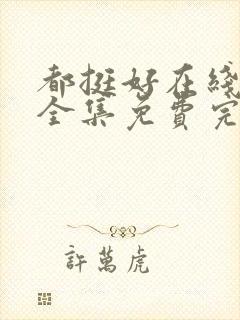 都挺好在线
全集免费完
許萬虎